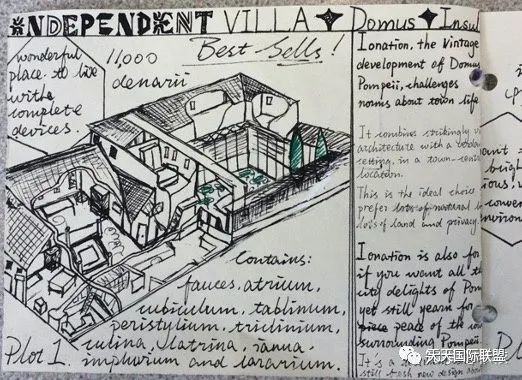 INDEPENDENT VILLA ✦ Domus ✦ Insul
wonderful
place to live
with a
complete
devices.
11,000
denarii
Best Sells!
Contains:
fauces, atrium,
cubiculum, tablinum,
peristylium, triclinium,
culina, latrina, janua,
impluvium and lararium.
Plot 1
Ionation, the vintage
development of Domu
Pompeii, challenges
norms about town life
It combines strikingly
architecture with a
setting, in a town-cent
location.
This is the ideal choice
prefer lots of natural
lots of land and privacy
Ionation is also for
if you want all th
city delights of Pom
yet still yearn for
peace of the
surrounding Pompeii
It's a
still fresh new design about
天天国际联盟